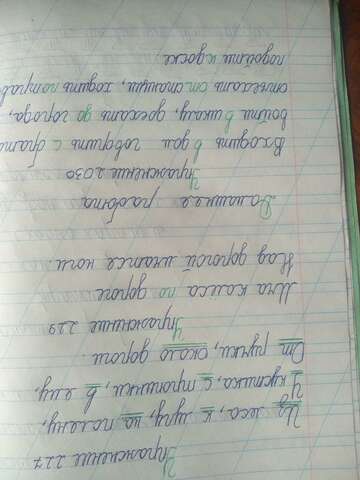 Упражнение 227
Из леса, к лугу, на поляну,
У кустика, с тропинки, в яму,
От ручки, около дороги.
Упражнение 229
Шла колёса по дороге
Над дорогой ноги.
Домашняя работа
Упражнение 2030
Входить в дом говорить с
войти в школу, доехать до города,
отъехать от станции, ходить по
подойти к доске.